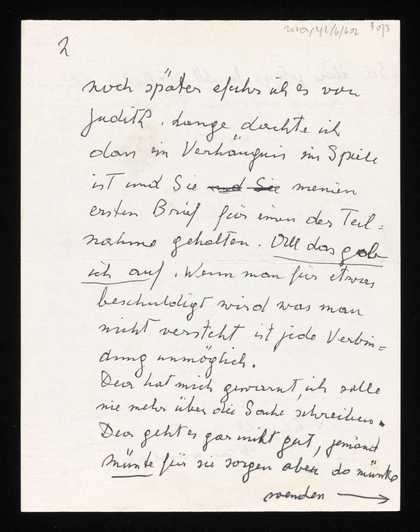 2
noch später erfuhr ich es von
Judith. Lange dachte ich
dass im Verhängnis im Spiele
ist und Sie und Sie meinen
ersten Brief für einen der Teil=
nahme gehalten. All das gab
ich auf. Wenn man für etwas
beschuldigt wird was man
nicht versteht ist jede Verbin=
dung unmöglich.
hat mich gewarnt, ich solle
nie mehr über die Sache schreiben.
geht es gar nicht gut, jemand
müsste für sie sorgen aber da müsste
wenden →